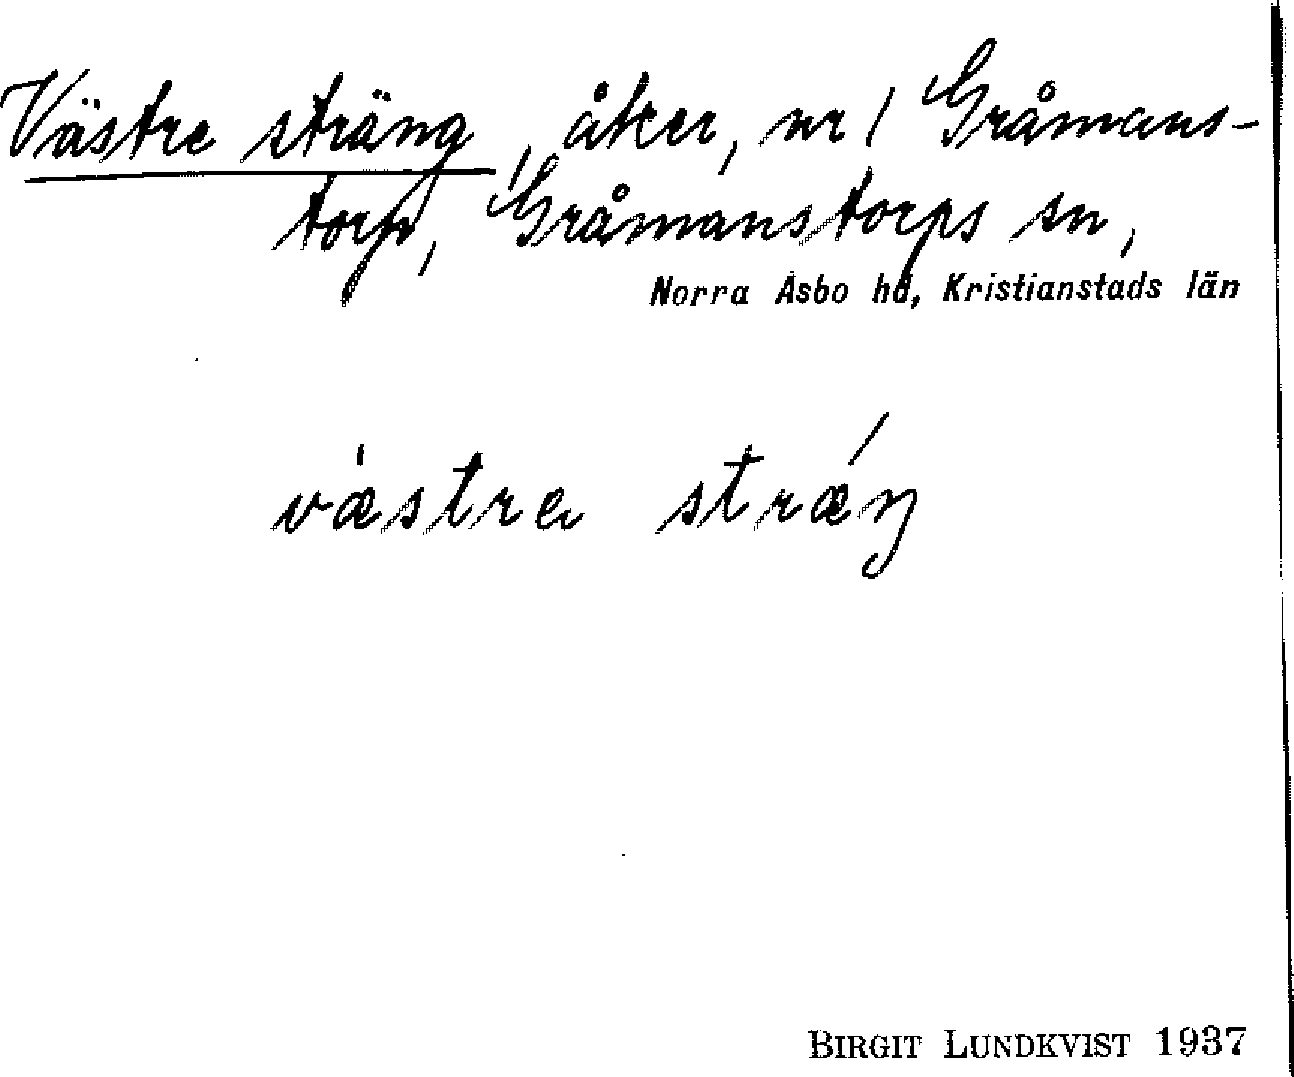 Västre sträng, åker, nr 1 Gråmans-
torp, Gråmanstorps sn,
Norra Åsbo hd, Kristianstads län
væ̍stre strǽŋ
BIRGIT LUNDKVIST 1937